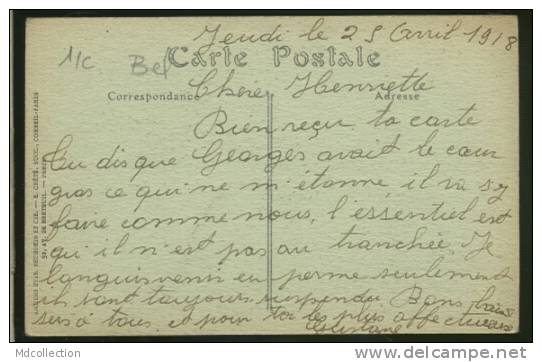 Jeudi le 25 Avril 1918
1/C
Bel
Carte Postale
Correspondance
Adresse
Chère Henriette
Bien reçu ta carte
Tu dis que Georges avait le cœur
gros ce qui ne m'étonne, il va s'y
faire comme nous, l'essentiel est
qu'il n'est pas au tranchée. Je
languis venir en perme seulement
ils sont toujours suspendu. Bons bai-
sers à tous, et pour toi les plus affectueux
Gustave
MdCollection
http://www.delcampe.net